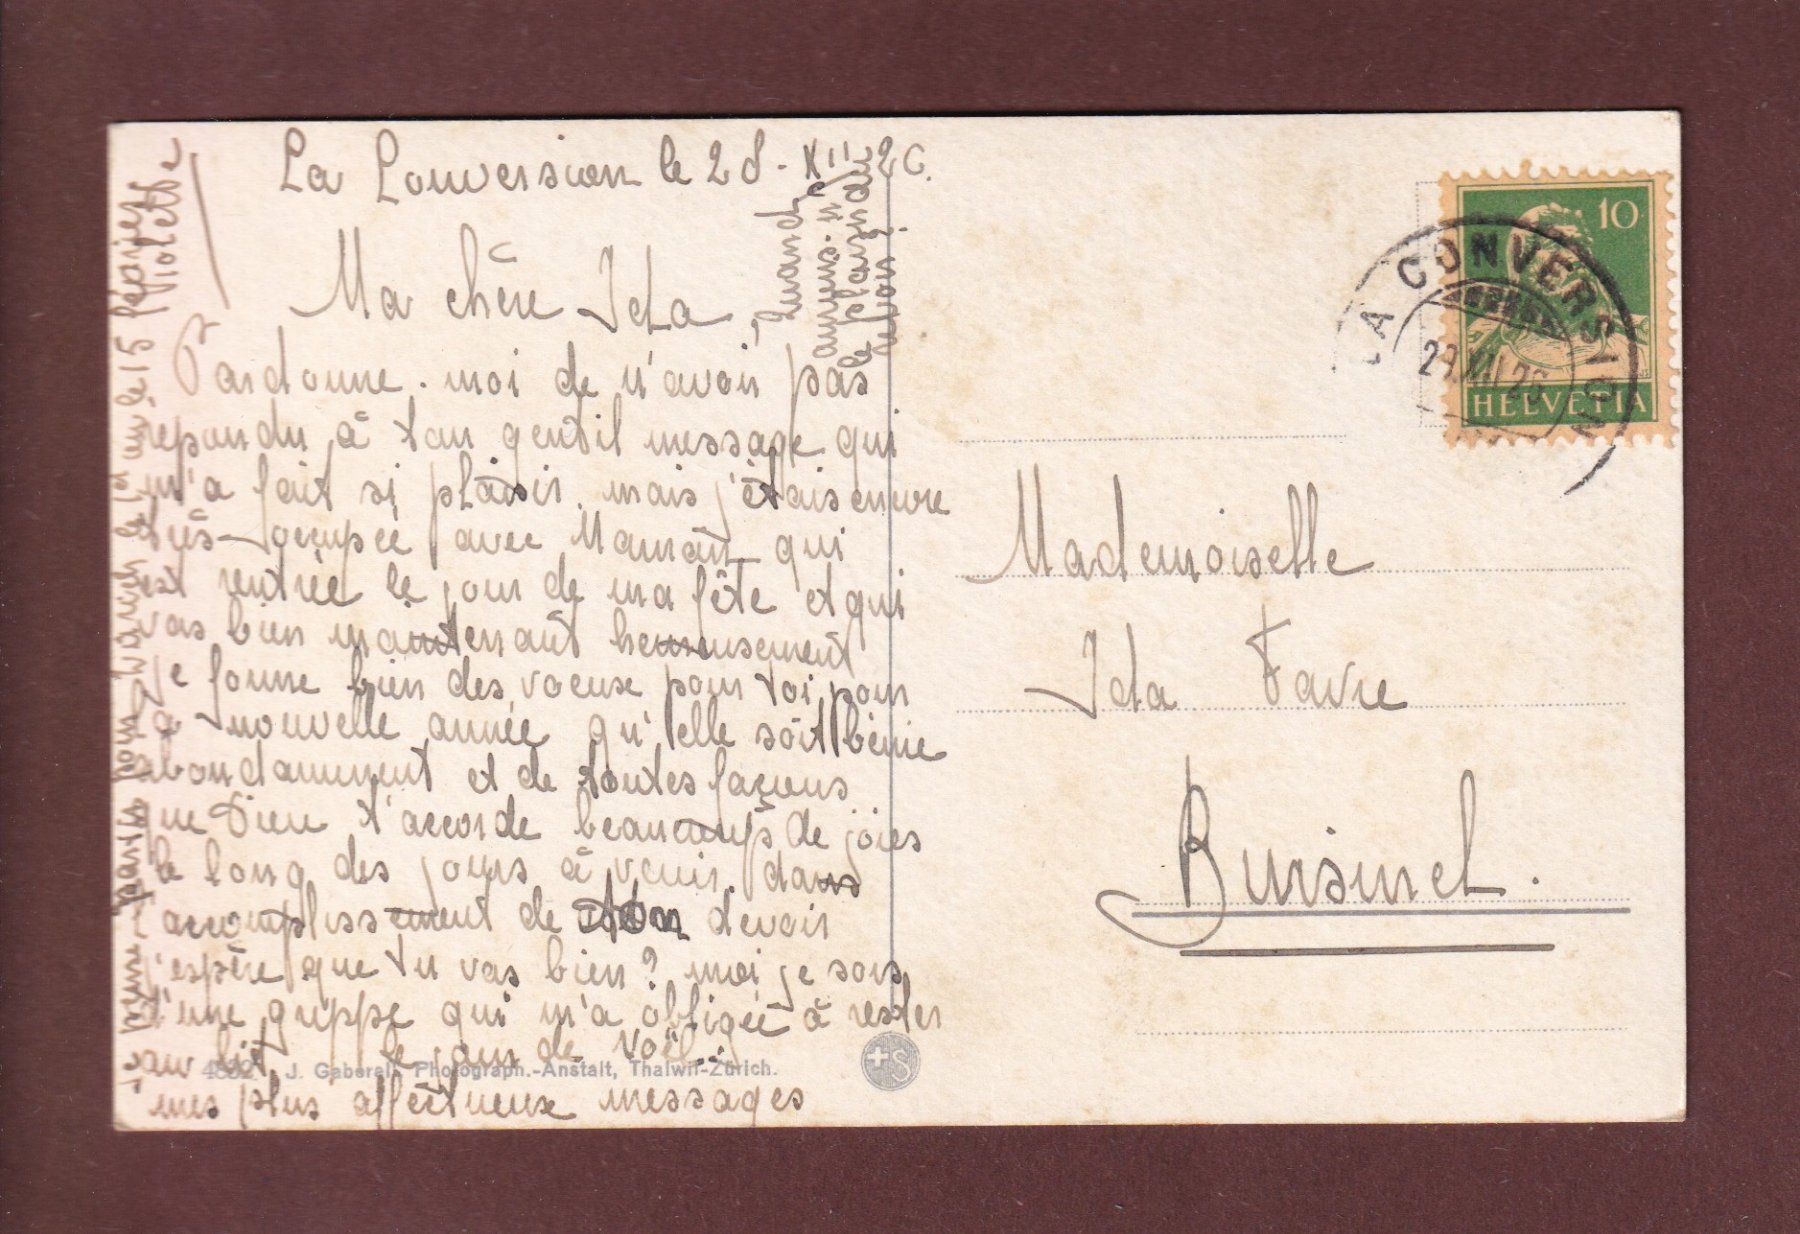 La Conversion le 28-XII 26.
Ma chère Ida,
Pardonne-moi de n'avoir pas
repondu à ton gentil message qui
m'a fait si plaisir, mais j'étais encore
très occupée avec Maman qui
est rentrée le jour de ma fête et qui
vas bien maintenant heureusement
je forme bien des voeux pour toi pour
la nouvelle année qu'elle soit bénie
abondamment et de toutes façons
que Dieu t'accorde beaucoup de joies
le long des jours à venir, dans
l'accomplissement de ton devoir
j'espère que tu vas bien? moi je sors
d'une grippe qui m'a obligée à rester
au lit le jour de Noël.
mes plus affectueux messages
je pense partir pour le 15
Violette
Quand
aurons-n.
le plaisir de
10
HELVETIA
LA CONVERSION
29.XII.26
Mademoiselle
Ida Favre
Bursinel.
4892 J. Gaberell, Photograph.-Anstalt, Thalwil-Zürich.
+S